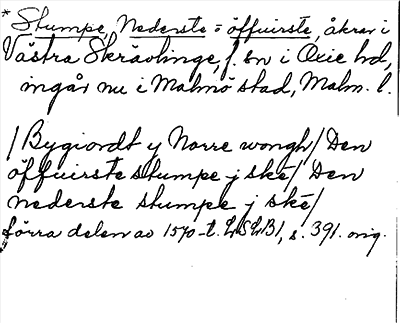 * Stumpe, Nederste = öffuirste, åkrar i
Västra Skrävlinge, f. sn i Oxie hd,
ingår nu i Malmö stad, Malm. l.
/ Bygiordt y Norre wongh / Den
öffuirste stumpe j ské / Den
nederste stumpe j ské /
förra delen av 1570-t. LSLB1, s. 391. orig.